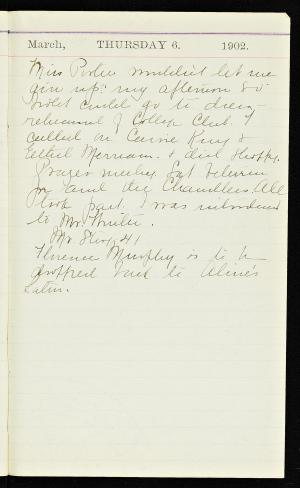 March, THURSDAY 6. 1902.
Miss Porter wouldn't let me
give up my afternoon so
Violet could go to dress-
rehearsal of College Club. I
called on Carrie King &
Ethel Merriam. & did shopping.
Prayer meeting
and the Chandlers. All
took part. I was introduced
to Mr. Hunter.
Mr
Florence Murphy is to be
dropped back to Aline's
Latin.